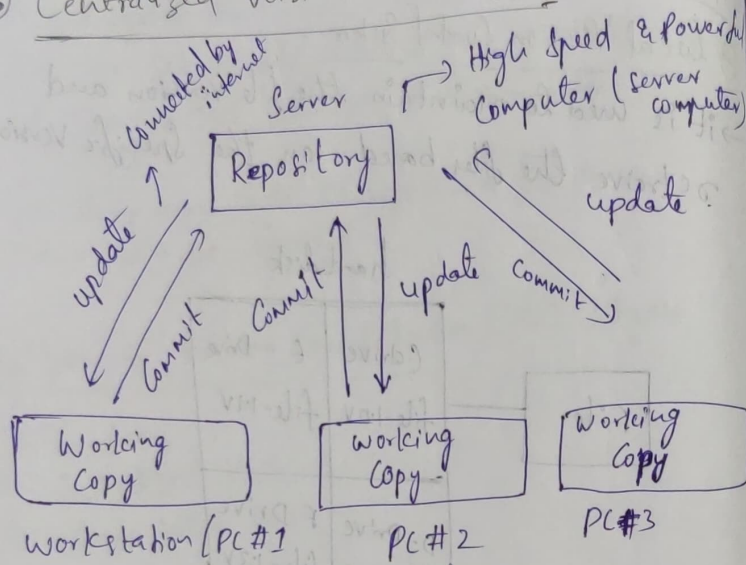 Centralized
connected by
internet
Server
High Speed & Powerful
Computer (server
computer)
Repository
update
Commit
Commit
update
update
Commit
Working
Copy
Working
Copy
Working
Copy
Workstation / PC #1
PC # 2
PC #3